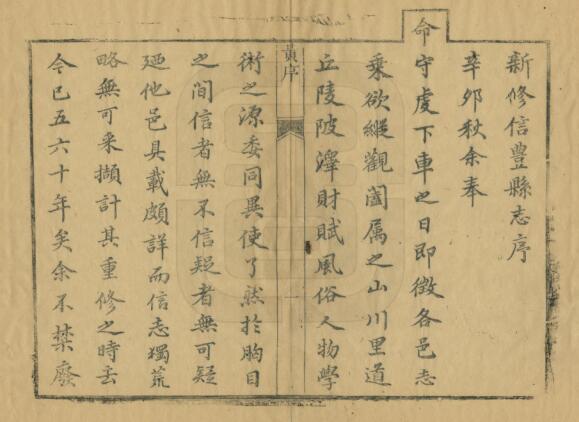 新修信豐縣志序
辛卯秋余奉
命守虔下車之日即徵各邑志
乘欲縱觀闔属之山川里道
丘陵陂澤財賦風俗人物學
黃序
一
術之源委同異使了然於胸目
之間信者無不信疑者無可疑
廼他邑具載頗詳而信志獨荒
略無可采擷計其重修之時去
今已五六十年矣余不禁廢